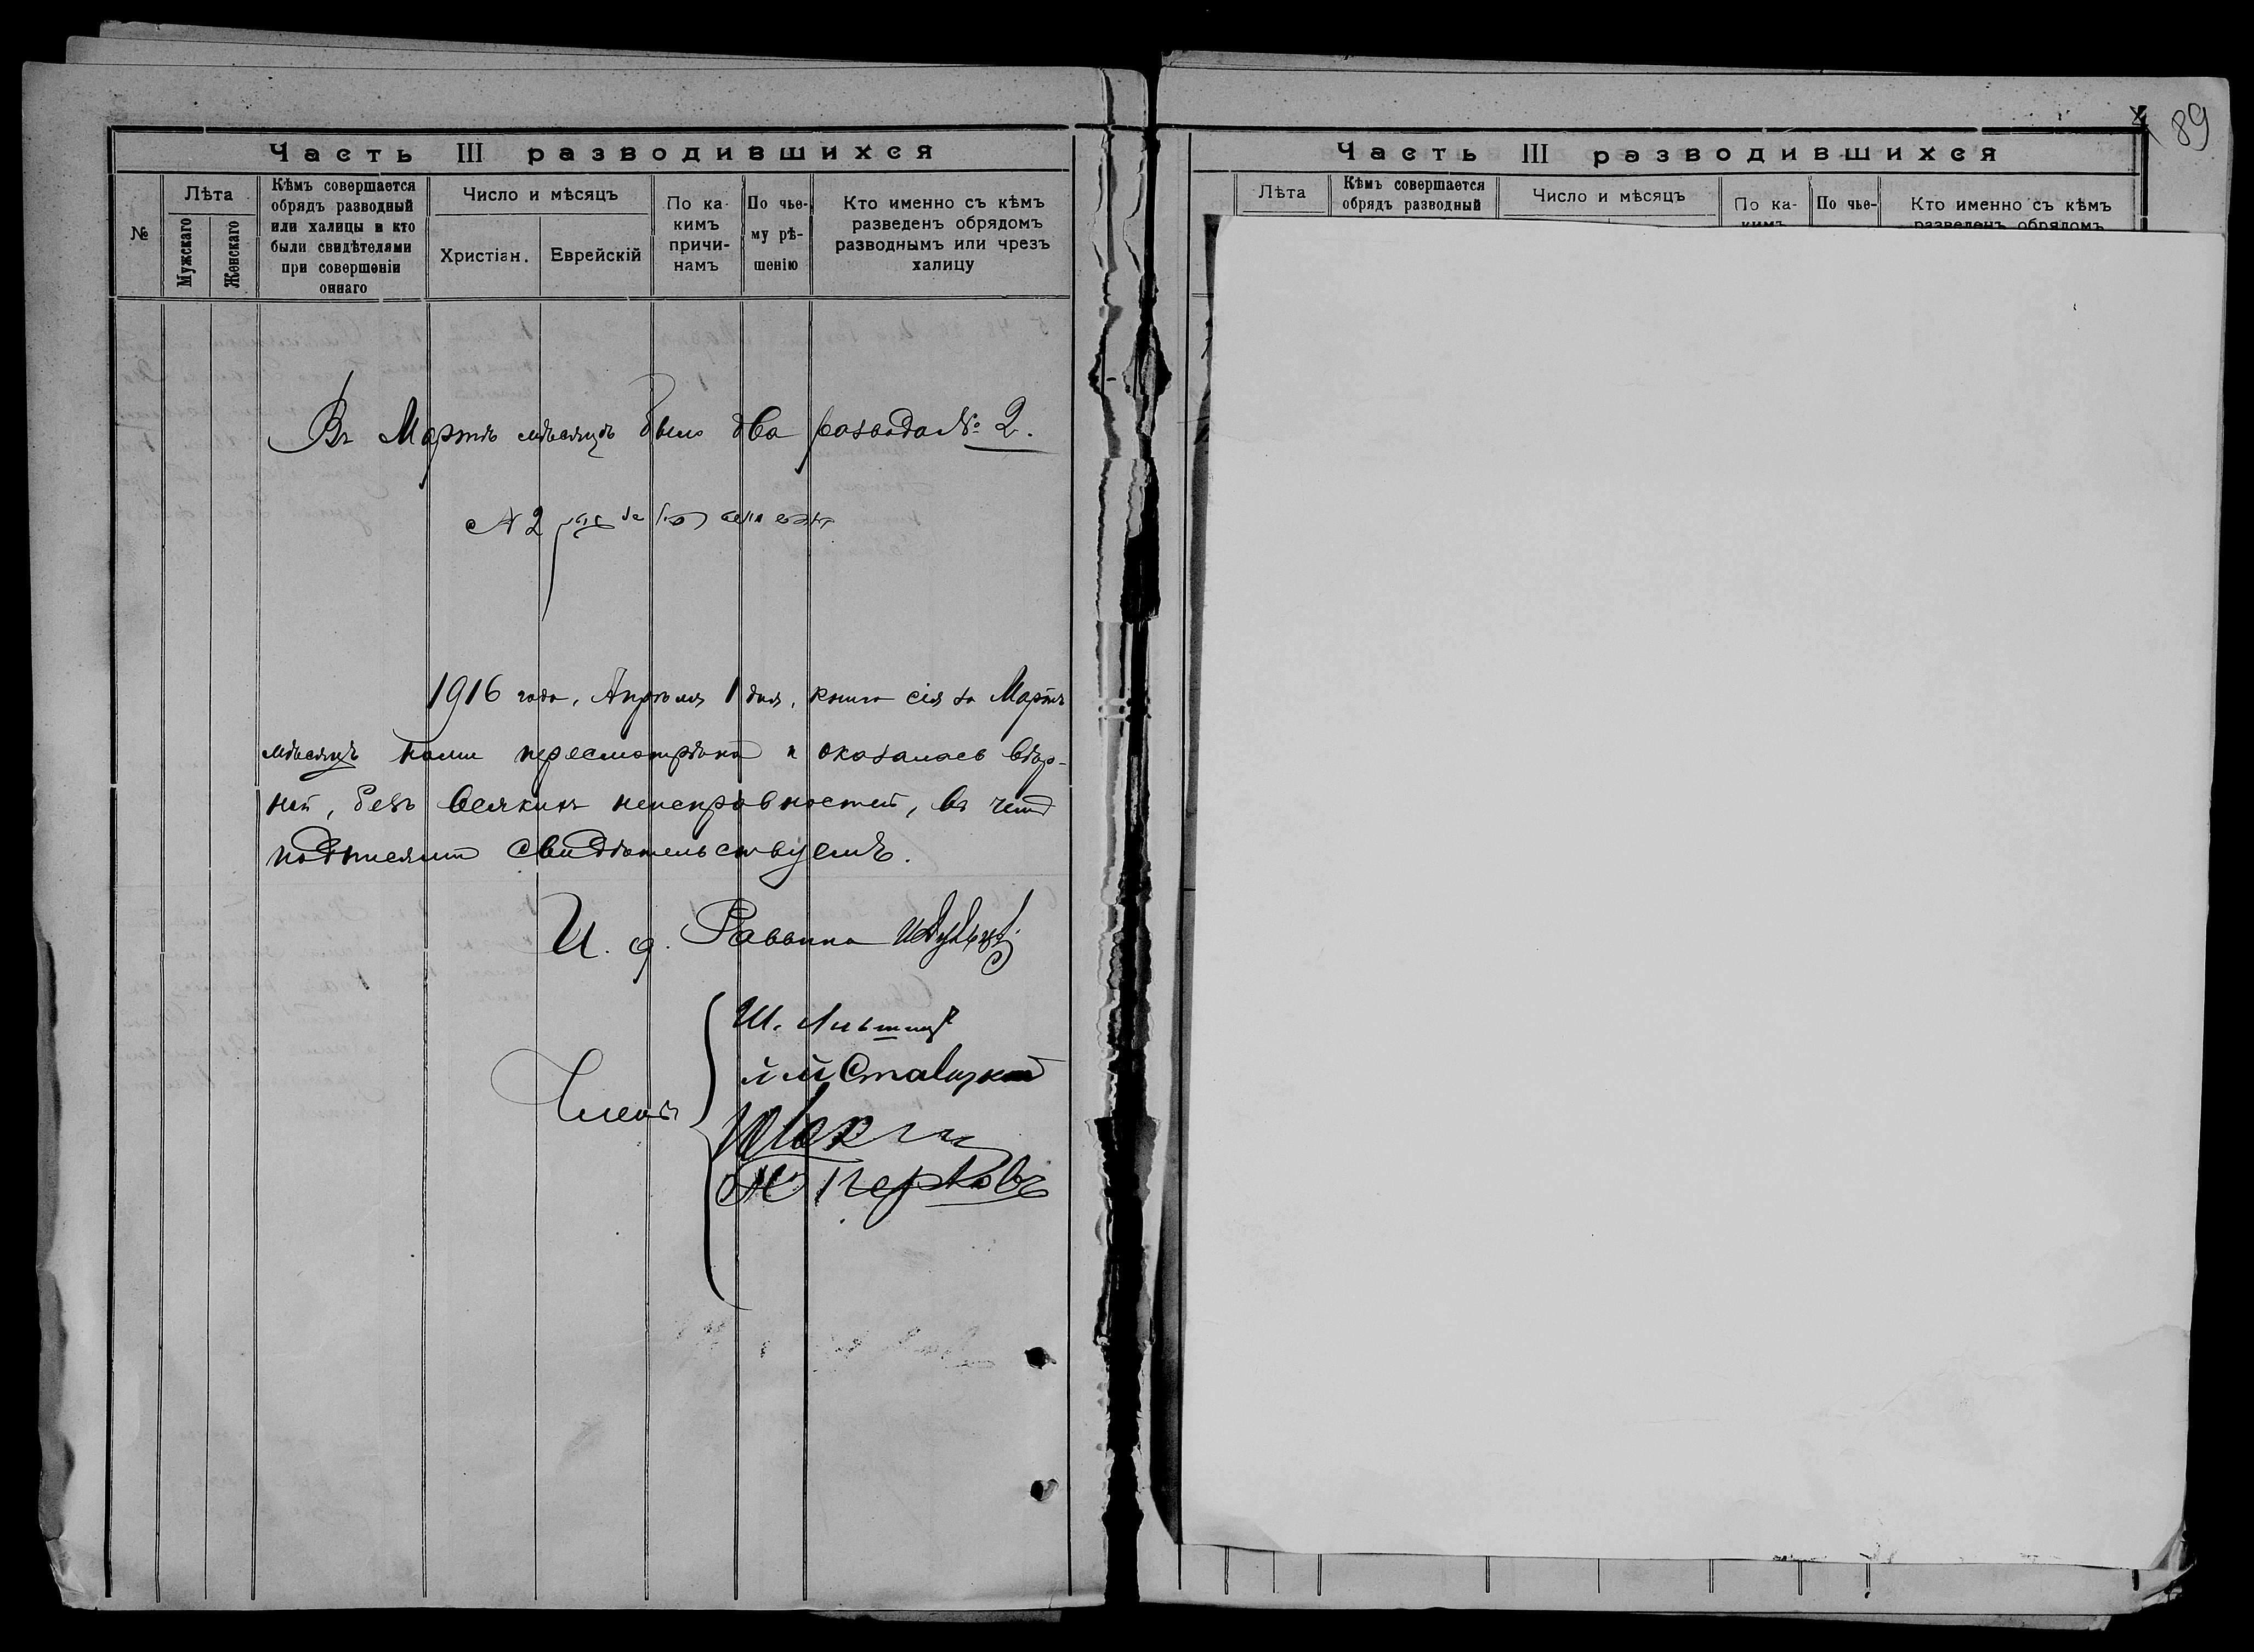 Часть III разводившихся
№
Лѣта
Мужскаго
Женскаго
Кѣмъ совершается
обрядъ разводный
или халицы и кто
были свидѣтелями
при совершеніи
оннаго
Число и мѣсяцъ
Христіан.
Еврейскій
По ка-
кимъ
причи-
намъ
По чье-
му рѣ-
шенію
Кто именно съ кѣмъ
разведенъ обрядомъ
разводнымъ или чрезъ
халицу
Въ Мартѣ мѣсяцѣ было два развода № 2.
№ 2
1916 года, Апрѣля 1 дня, книга сія за Мартъ
мѣсяцъ нами пересмотрѣна и оказалась вѣр-
ной, безъ всякихъ неисправностей, въ чемъ
подписями свидѣтельствуемъ.
И. д. Раввина
Члены
Ш. Лившицъ
Ставицкій
89
Часть III разводившихся
Лѣта
Кѣмъ совершается
обрядъ разводный
Число и мѣсяцъ
По ка-
кимъ
По чье-
Кто именно съ кѣмъ
разведенъ обрядомъ